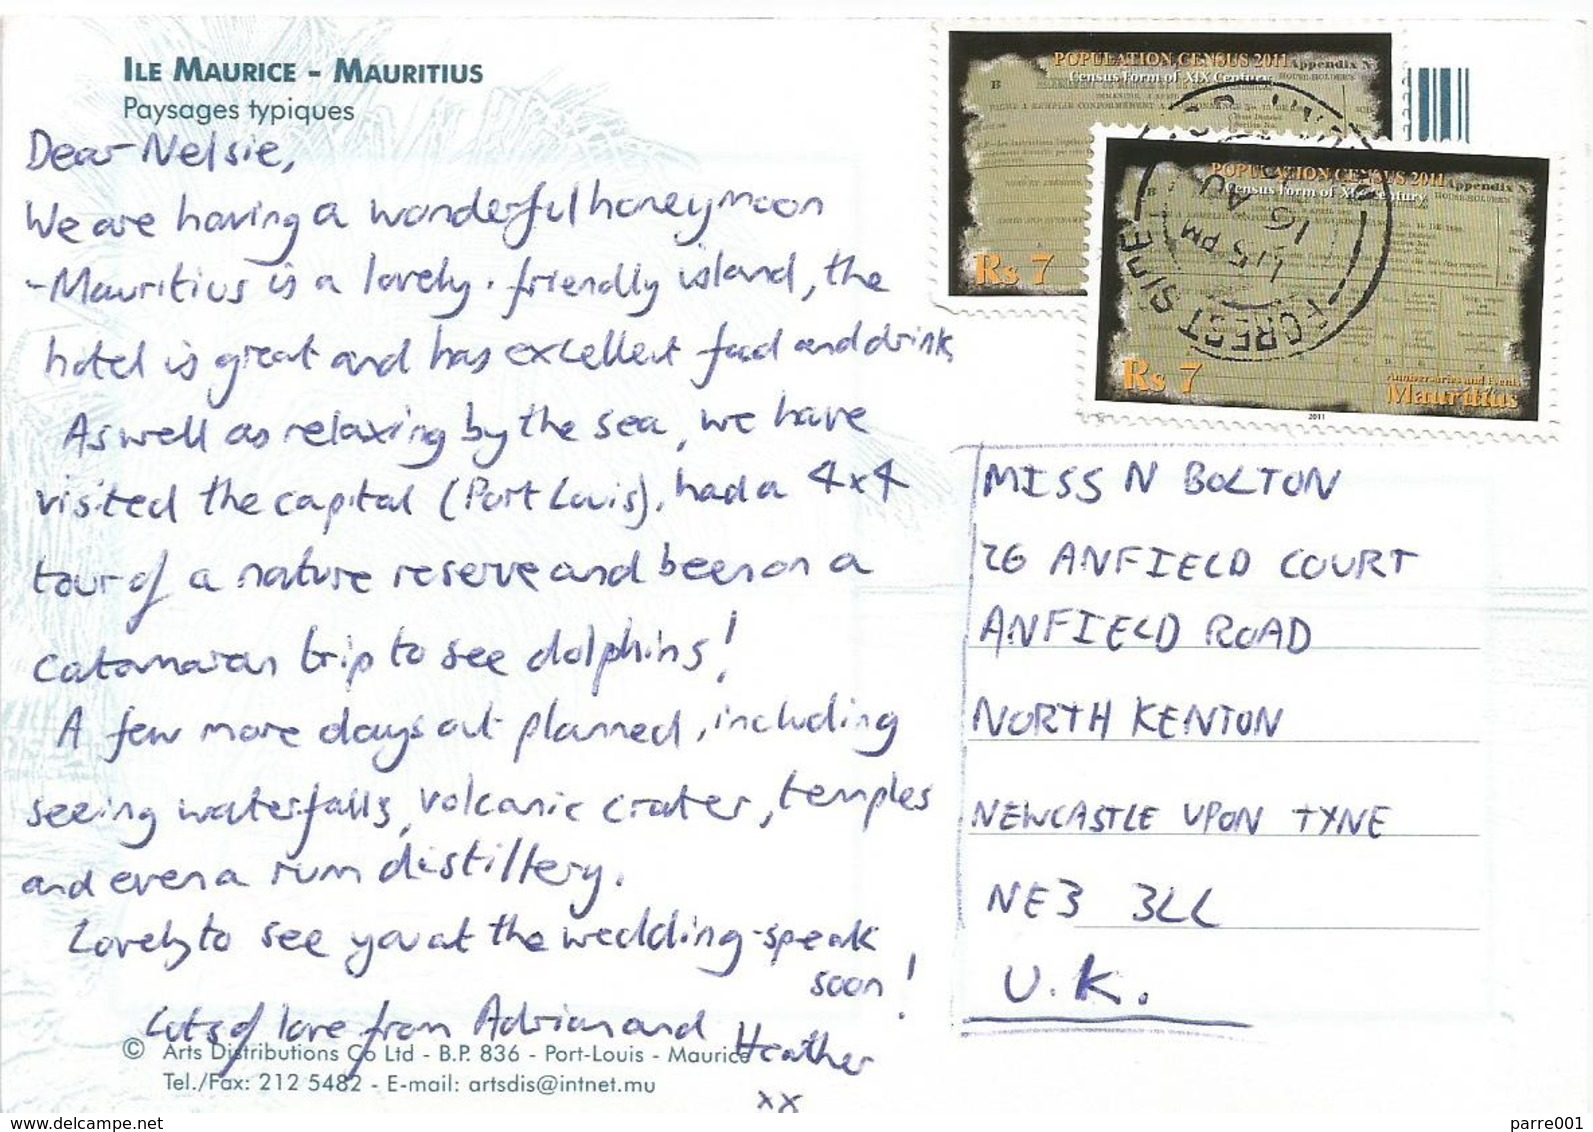 ILE MAURICE - MAURITIUS
Paysages typiques
Dear Nelsie,
We are having a wonderful honeymoon
- Mauritius is a lovely, friendly island, the
hotel is great and has excellent food and drink
As well as relaxing by the sea, we have
visited the capital (Port Louis), had a 4x4
tour of a nature reserve and been on a
catamaran trip to see dolphins!
A few more days out planned, including
seeing waterfalls, volcanic crater, temples
and even a rum distillery.
Lovely to see you at the wedding - speak
soon!
Lots of love from Adrian and Heather
xx
© Arts Distributions Co Ltd - B.P. 836 - Port-Louis - Maurice
Tel./Fax: 212 5482 - E-mail: artsdis@intnet.mu
POPULATION CENSUS 2011
Census Form of XIX Century
Appendix
B
Rs 7
POPULATION CENSUS 2011
Census Form of XIX Century
Appendix
Rs 7
Anniversaries and Events
Mauritius
2011
FOREST SIDE
1.15 PM
16 AU
MISS N BOLTON
26 ANFIELD COURT
ANFIELD ROAD
NORTH KENTON
NEWCASTLE UPON TYNE
NE3 3LL
U.K.
parre001